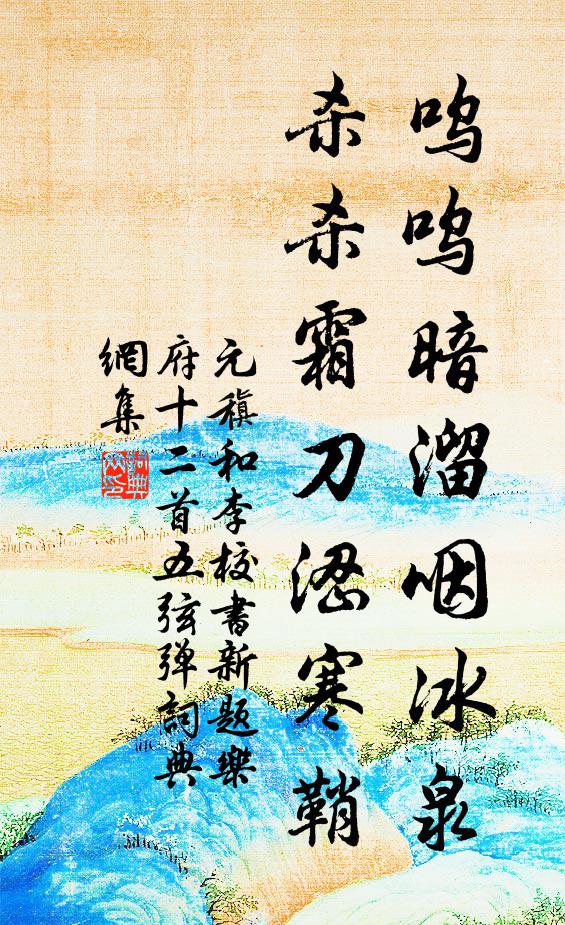 呜呜暗溜咽冰泉
杀杀霜刀涩寒鞘
元稹和李校書新题樂
府十二首五弦弹詞典
網集